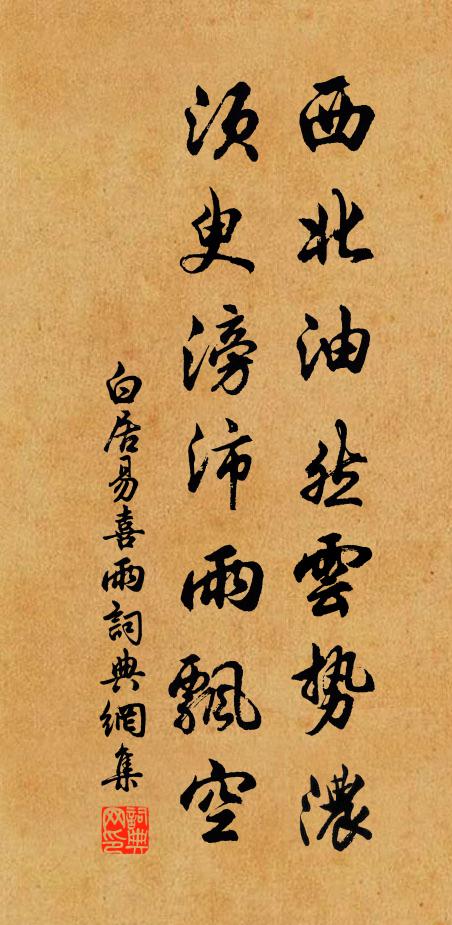 西北油然雲势濃
須臾滂沛雨飄空
白居易喜雨詞典網集
詞典網印